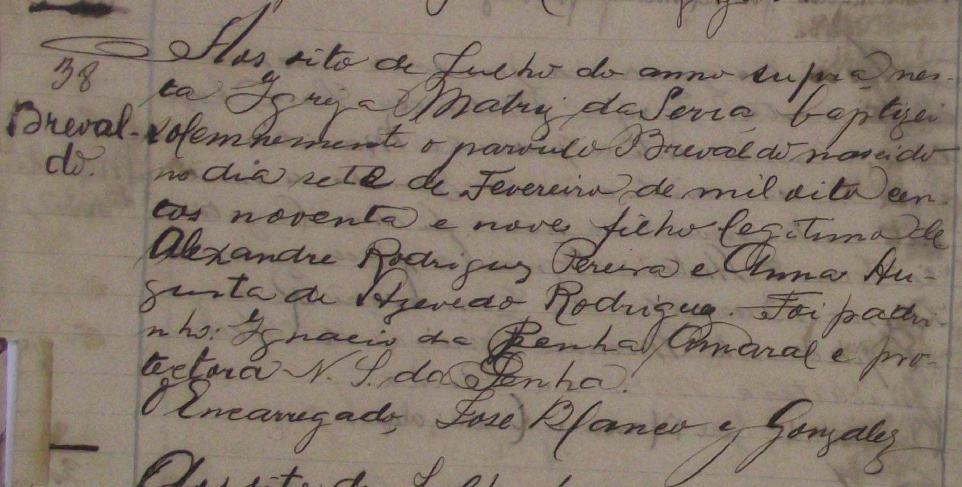 38
Breval-
do.
Aos oito de Julho do anno supra, nes-
ta Igreja Matriz da Serra baptizei
solemnemente o parvulo Brevaldo nascido
no dia sete de Fevereiro de mil oito cen-
tos noventa e nove filho legitimo de
Alexandre Rodrigues Pereira e Anna Au-
gusta de Azevedo Rodrigues. Foi padri-
nho: Ignacio da Penha Amaral e pro-
tectora N. S. da Penha.
O Encarregado, José Blanco y Gonzalez
Aos oito de Julho